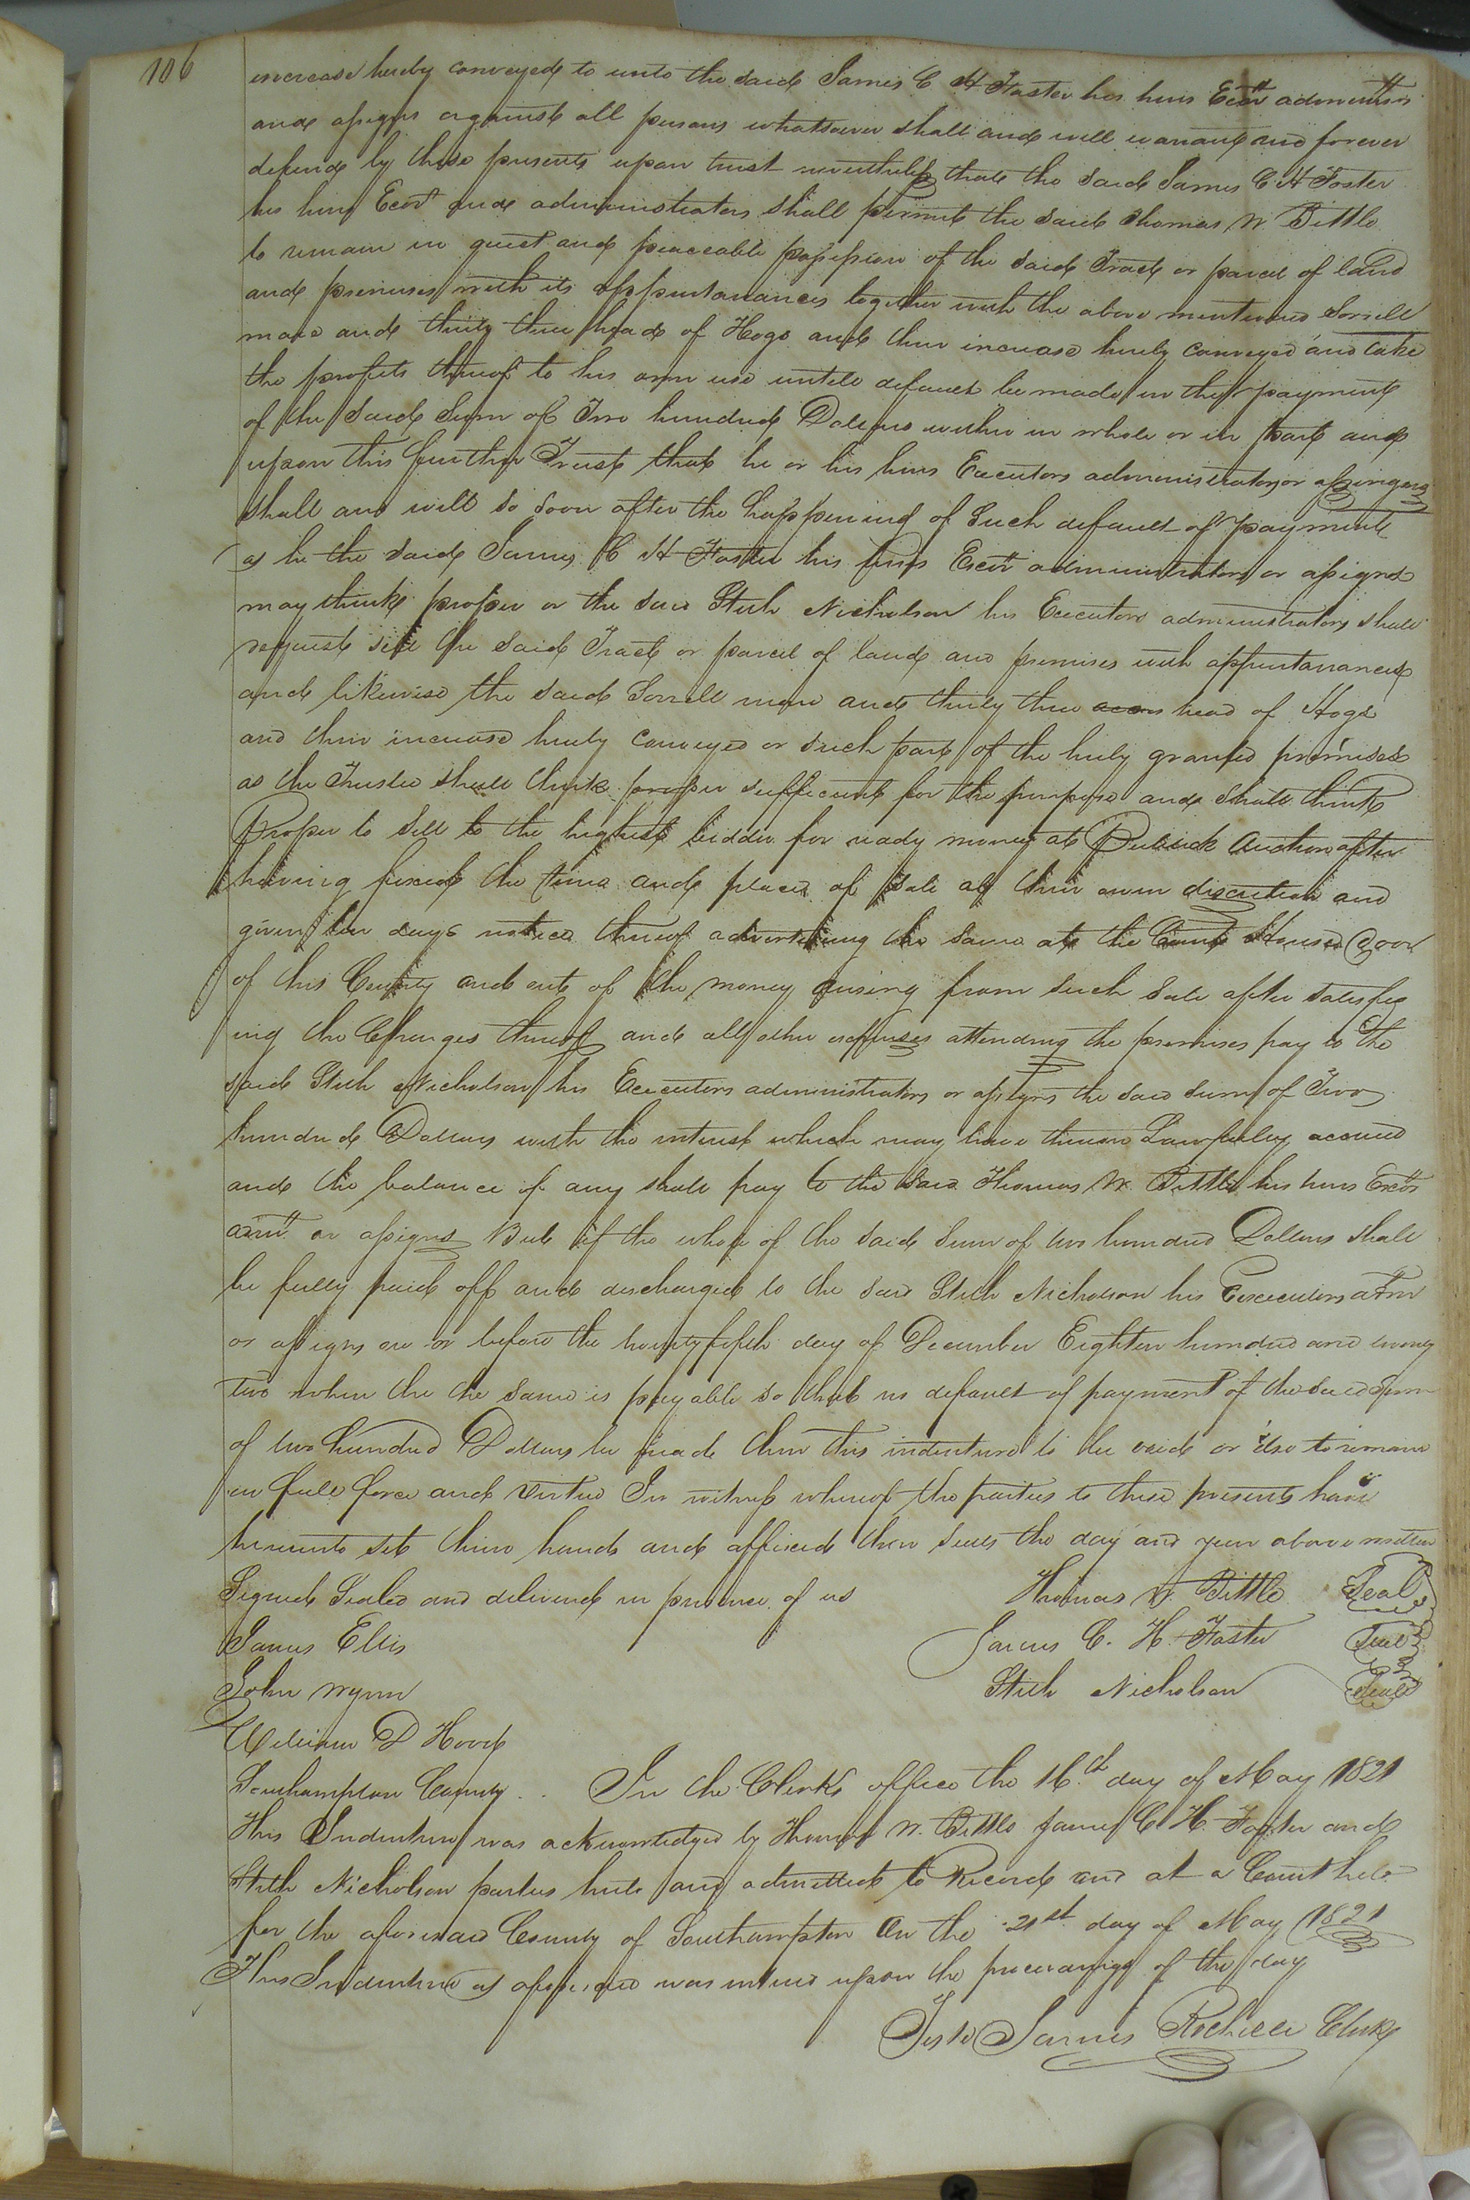 106
increase hereby conveyed to unto the said James C H Foster his heirs Exors adminrs
and assigns against all persons whatsoever shall and will warrant and forever
defend by these presents upon trust nevertheless that the said James C H Foster
his heirs Exors and administrators shall permit the said Thomas W Bittle
to remain in quiet and peaceable possession of the said Tract or parcel of land
and premises with its appurtanances together with the above mentioned Sorrell
mare and thirty three head of Hogs and their increase hereby conveyed and take
the profits thereof to his own use untill default be made in the payment
of the said Sum of Two hundred Dollars either in whole or in part and
upon this further Trust that he or his heirs Executors administrators or assigns
shall and will so soon after the happening of Such default of payment
as he the said James C H Foster his heirs Exors administrators or assigns
may think proper or the said Stith Nicholson his Executors administrators shall
request sell the said Tract or parcel of land and premises with appurtanances
and likewise the said Sorrell mare and thirty three head of Hogs
and their increase hereby conveyed or such part of the hereby granted premises
as the Trustee shall think proper sufficient for the purpose and shall think
Proper to Sell to the highest bidder for ready money at Publick Auction after
having fixed the time and place of Sale at their own discretion and
given ten days notice thereof advertising the same at the Court House Door
of this County and out of the money arising from such Sale after satisfy
ing the Charges thereof and all other expenses attending the premises pay to the
said Stith Nicholson his Executors administrators or assigns the said sum of Two
hundred Dollars with the interest which may have thereon Lawfully accrued
and the balance if any shall pay to the said Thomas W Bittle his heirs Exors
admrs or assigns But if the whole of the said sum of two hundred Dollars shall
be fully paid off and discharged to the said Stith Nicholson his Executors adm
or assigns on or before the twenty fifth day of December Eighteen hundred and twenty
two when the the same is payable so that no default of payment of the said Sum
of two hundred Dollars be made then this indenture to be void or else to remain
in full force and virtue In witness whereof the parties to these presents have
hereunto set their hands and affixed their seals the day and year above written
Signed Sealed and delivered in presence of us Thomas W. Bittle Seal
James Ellis James C. H. Foster Seal
John Wynn Stith Nicholson Seal
William D Hood
Southampton County .. In the Clerks office the 16.th day of May 1821
This Indenture was acknowledged by Thomas W. Bittle James C H Foster and
Stith Nicholson parties hereto and admitted to Record and at a Court held
for the aforesaid County of Southampton On the 21st day of May 1821
This Indenture as aforesaid was entered upon the proceedings of the day
Teste James Rochelle Clerk